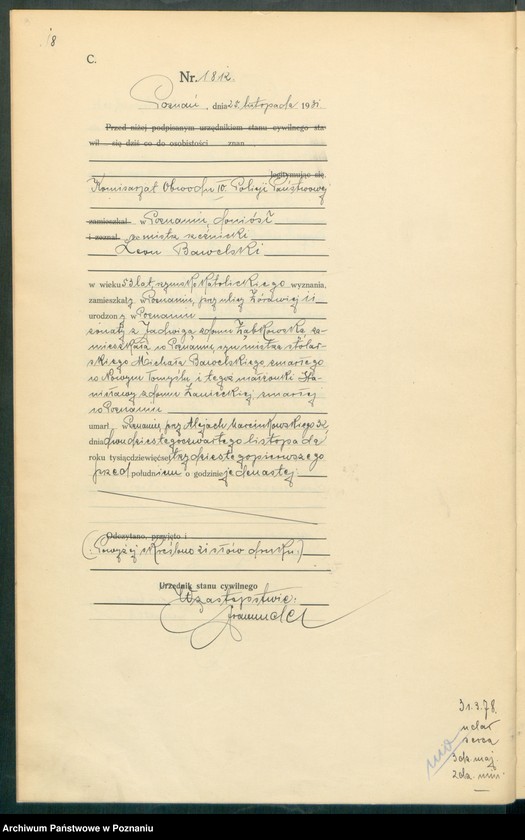 18
C.
Nr. 1812
Poznań, dnia 25 listopada 1931
Przed niżej podpisanym urzędnikiem stanu cywilnego sta-
wił się dziś co do osobistości znan
legitymując się
Komisarjat Obwodu IV. Policji Państwowej
zamieszkał w Poznaniu doniósł
i zeznał, że mistrz rzeźnicki
Leon Bawelski
w wieku 53 lat, rzymsko katolickiego wyznania,
zamieszkały w Poznaniu, przy ulicy Żórawiej 11
urodzony w Poznaniu
żonaty z Jadwigą z domu Ząbkowską za-
mieszkałą w Poznaniu, syn mistrza stolar-
skiego Michała Bawelskiego zmarłego
w Nowym Tomyślu i tegoż małżonki Sta-
nisławy z domu zmarłej
w Poznaniu
umarł w Poznaniu, przy Alejach Marcinkowskiego 32
dnia dwudziestegoczwartego listopada
roku tysiącdziewięćset trzydziestegopierwszego
przed południem o godzinie jedenastej
Odczytano, przyjęto i
(Powyżej skreślono 21 słów druku.)
Urzędnik stanu cywilnego
W zastępstwie:
31.3.78.
udar
serca
3 dz. maj.
2 dz. nieł.
Archiwum Państwowe w Poznaniu